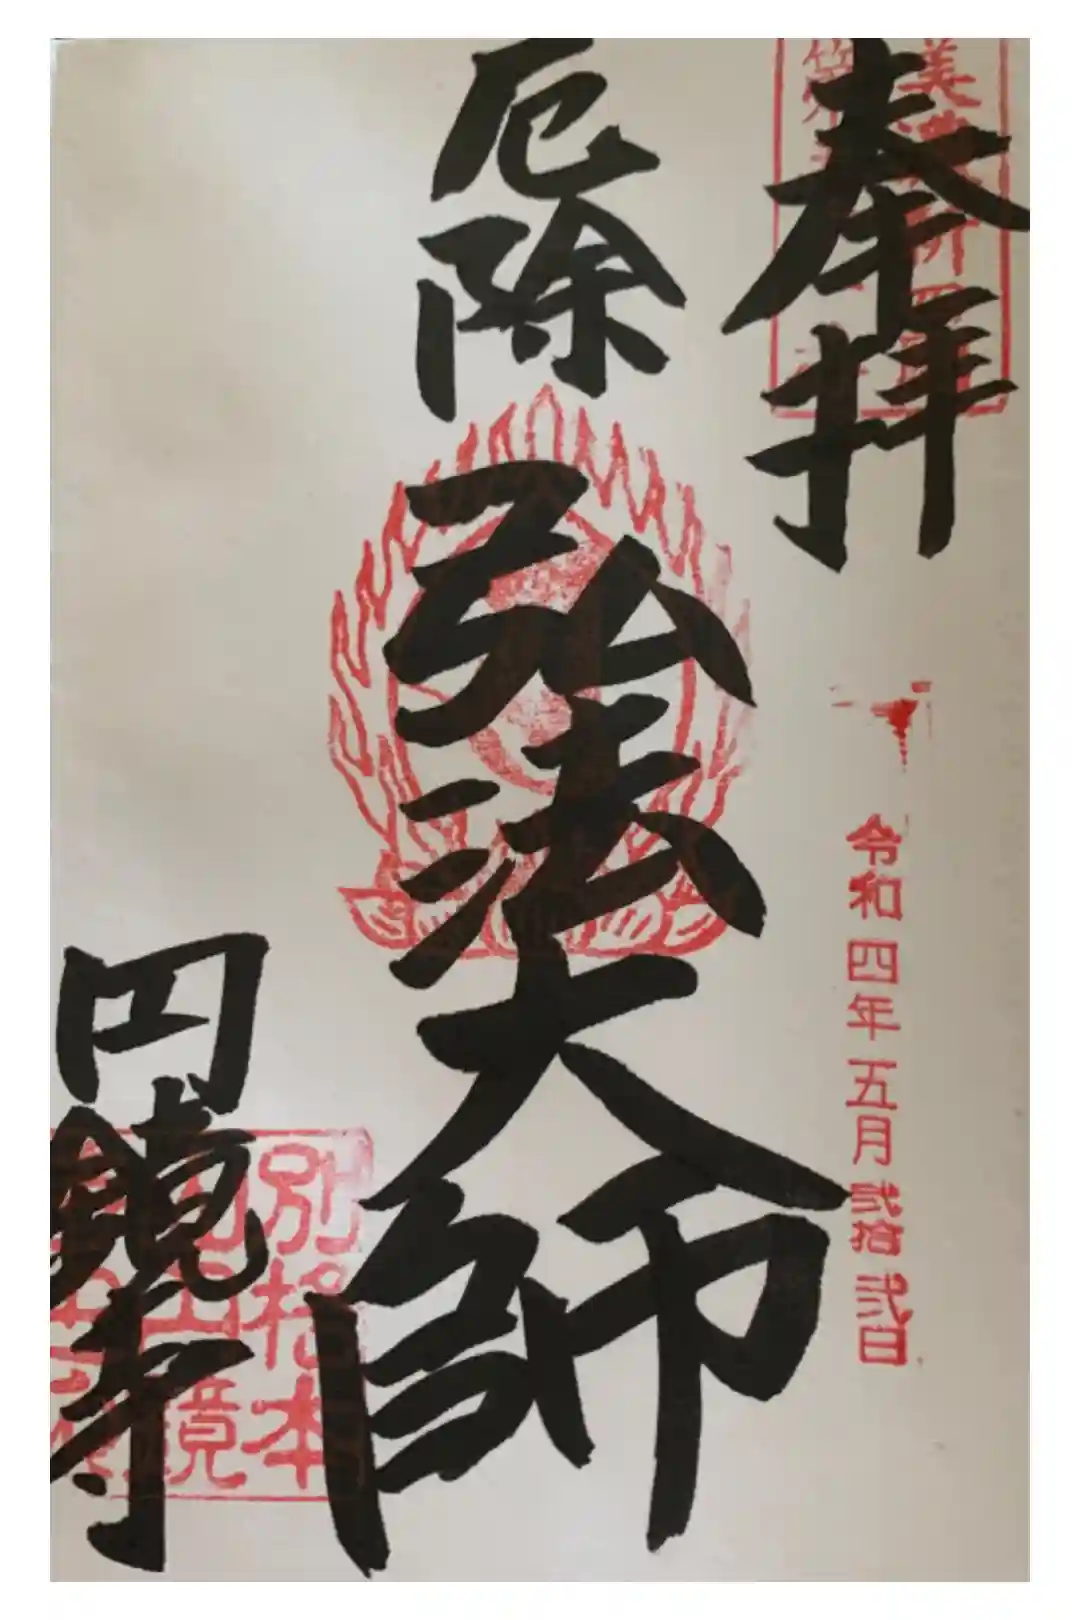 奉拝
令和四年五月弐拾弐日
厄除
弘法大師
円鏡寺
別格本
山
鏡